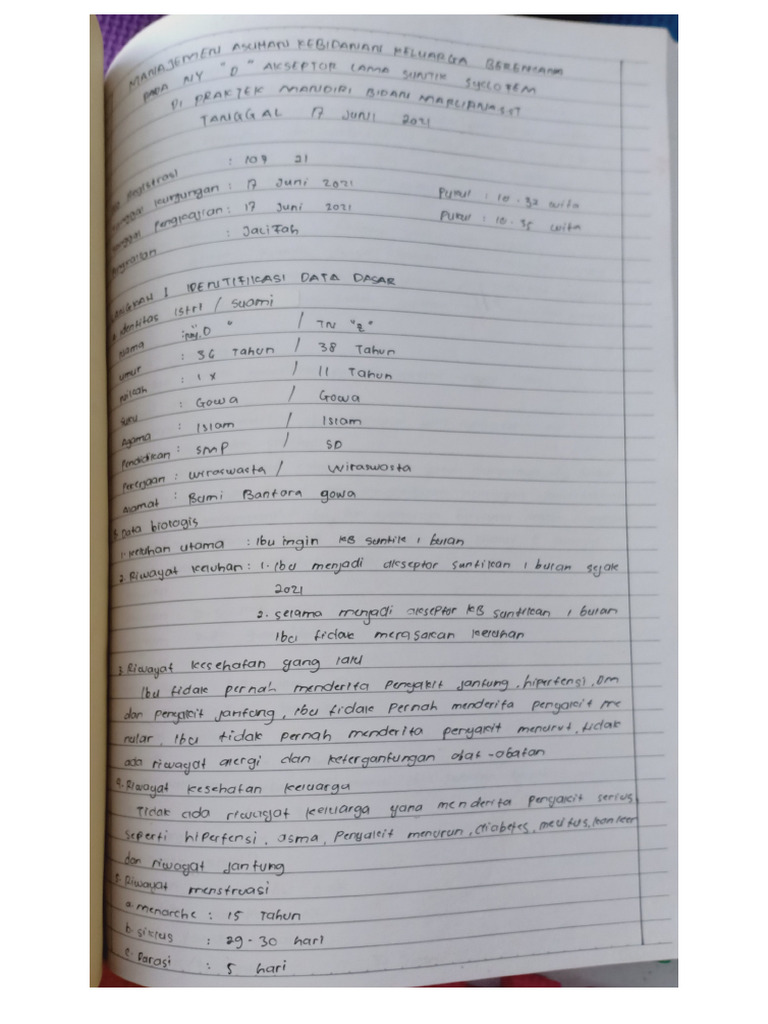 MANAJEMEN ASUHAN KEBIDANAN KELUARGA BERENCANA
PADA NY "D" AKSEPTOR LAMA SUNTIK SYCLOFEM
DI PRAKTEK MANDIRI BIDAN
TANGGAL 17 JUNI 2021
Registrasi : 109 21
Kunjungan : 17 Juni 2021 Pukul : 10.32 wita
Pengkajian : 17 Juni 2021 Pukul : 10.35 wita
: Jalifah
LANGKAH I IDENTIFIKASI DATA DASAR
A. Identitas Istri / Suami
Nama : "Ny. D" / TN "Z"
Umur : 36 Tahun / 38 Tahun
Nikah : 1 x / 11 Tahun
Suku : Gowa / Gowa
Agama : Islam / Islam
Pendidikan : SMP / SD
Pekerjaan : wiraswasta / Wiraswasta
Alamat : Bumi Bantara gowa
B. Data biologis
1. Keluhan utama : Ibu ingin KB suntik 1 bulan
2. Riwayat keluhan : 1. Ibu menjadi akseptor suntikan 1 bulan sejak
2021
2. selama menjadi akseptor KB suntikan 1 bulan
Ibu tidak merasakan keluhan
3. Riwayat kesehatan yang lalu
Ibu tidak pernah menderita penyakit jantung, hipertensi, DM
dan penyakit jantung, Ibu tidak pernah menderita penyakit me
nular, Ibu tidak pernah menderita penyakit menurut, tidak
ada riwayat alergi dan ketergantungan obat-obatan
4. Riwayat kesehatan keluarga
Tidak ada riwayat keluarga yang menderita penyakit serius
seperti hipertensi, asma, penyakit menurun, diabetes, melitus, kanker
dan riwayat jantung
5. Riwayat menstruasi
a. menarche : 15 Tahun
b. siklus : 29-30 hari
c. Darasi : 5 hari